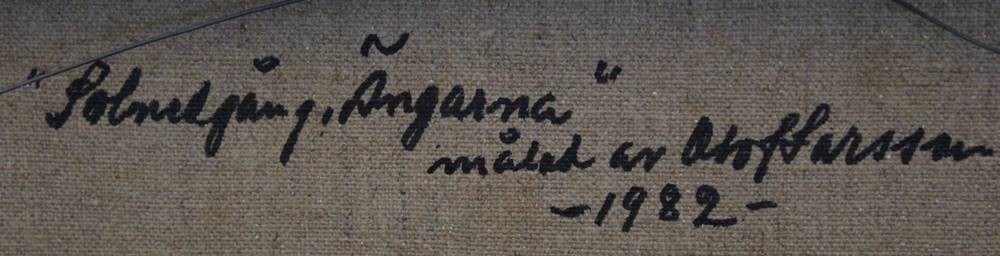 "Solnedgång, Ängarna"
målad av Olof Larsson
-1982-